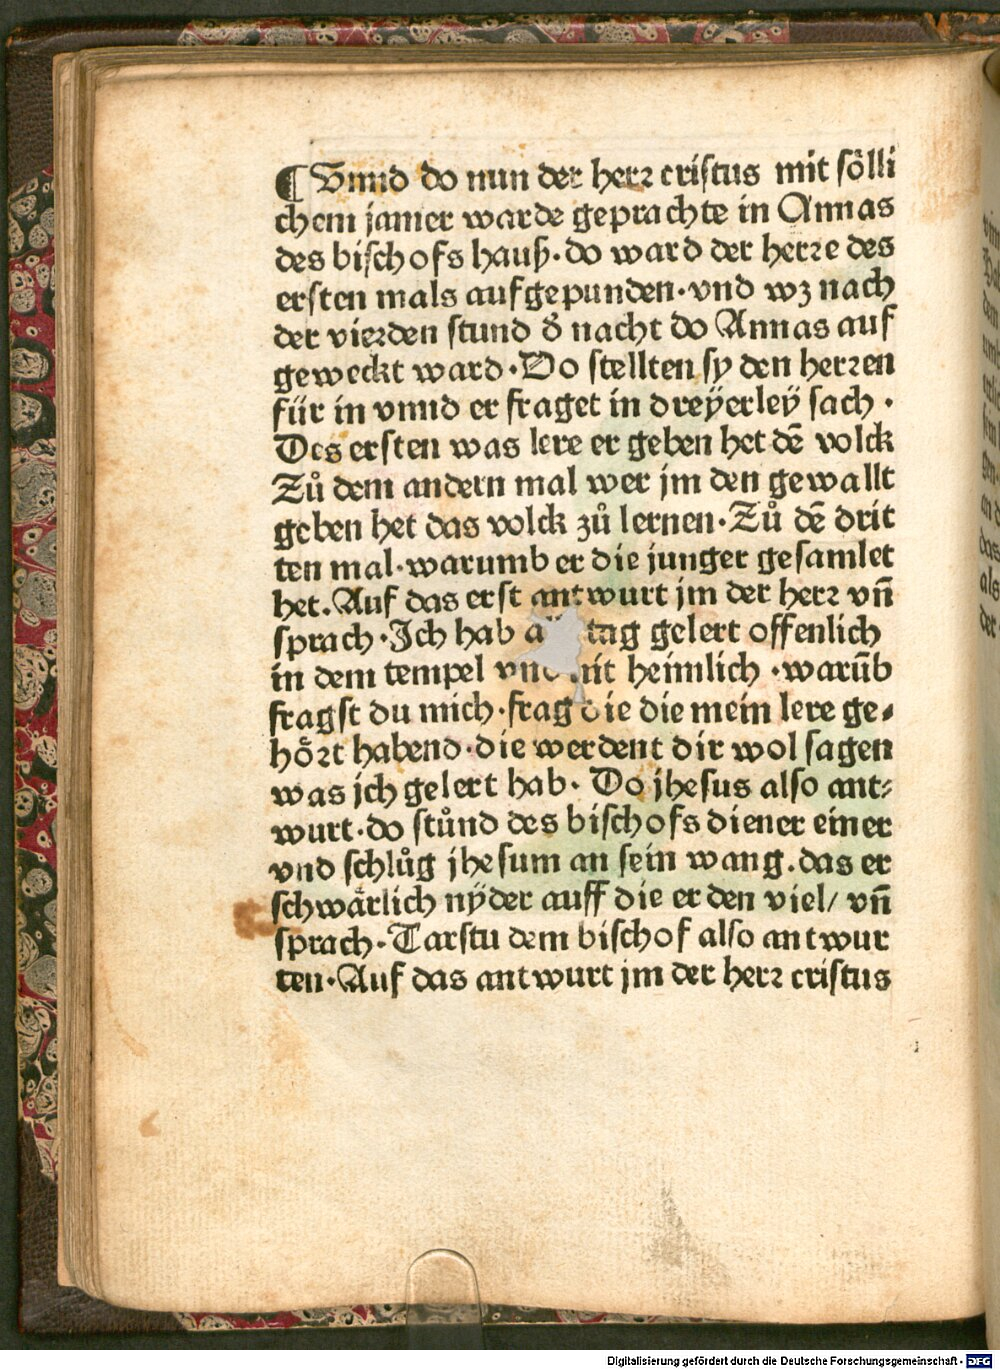 ¶ Vnnd do nun der herr cristus mit sölli
chem jamer warde geprachte in Annas
des bischofs hauß·do ward der herre des
ersten mals aufgepunden·vnd wz nach
der vierden stund d̄ nacht do Annas auf
geweckt ward·Do stellten sy den herren
für in vnnd er fraget in dreÿerleÿ sach·
Des ersten was lere er geben het dē volck
Zů dem andern mal wer jm den gewallt
geben het das volck zů lernen·Zů dē drit
ten mal·warumb er die junger gesamlet
het·Auf das erst antwurt jm der herr vn̄
sprach·Ich hab tag gelert offenlich
in dem tempel heimlich·warūb
fragst du mich·frag die die mein lere ge⸗
hört habend·die werdent dir wol sagen
was jch gelert hab· Do jhesus also ant⸗
wurt·do stůnd des bischofs diener einer
vnd schlůg jhesum an sein wang·das er
schwärlich nÿder auff die erden viel/ vn̄
sprach·Tarstu dem bischof also antwur
ten·Auf das antwurt jm der herr cristus
Digitalisierung gefördert durch die Deutsche Forschungsgemeinschaft - DFG